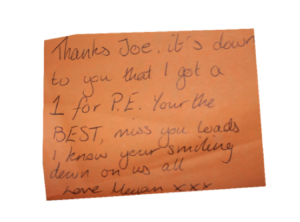 Thanks Joe. it's down
to you that I got a
1 for P.E. Your the
BEST, miss you loads
I know your smiling
down on us all
Love Megan xxx